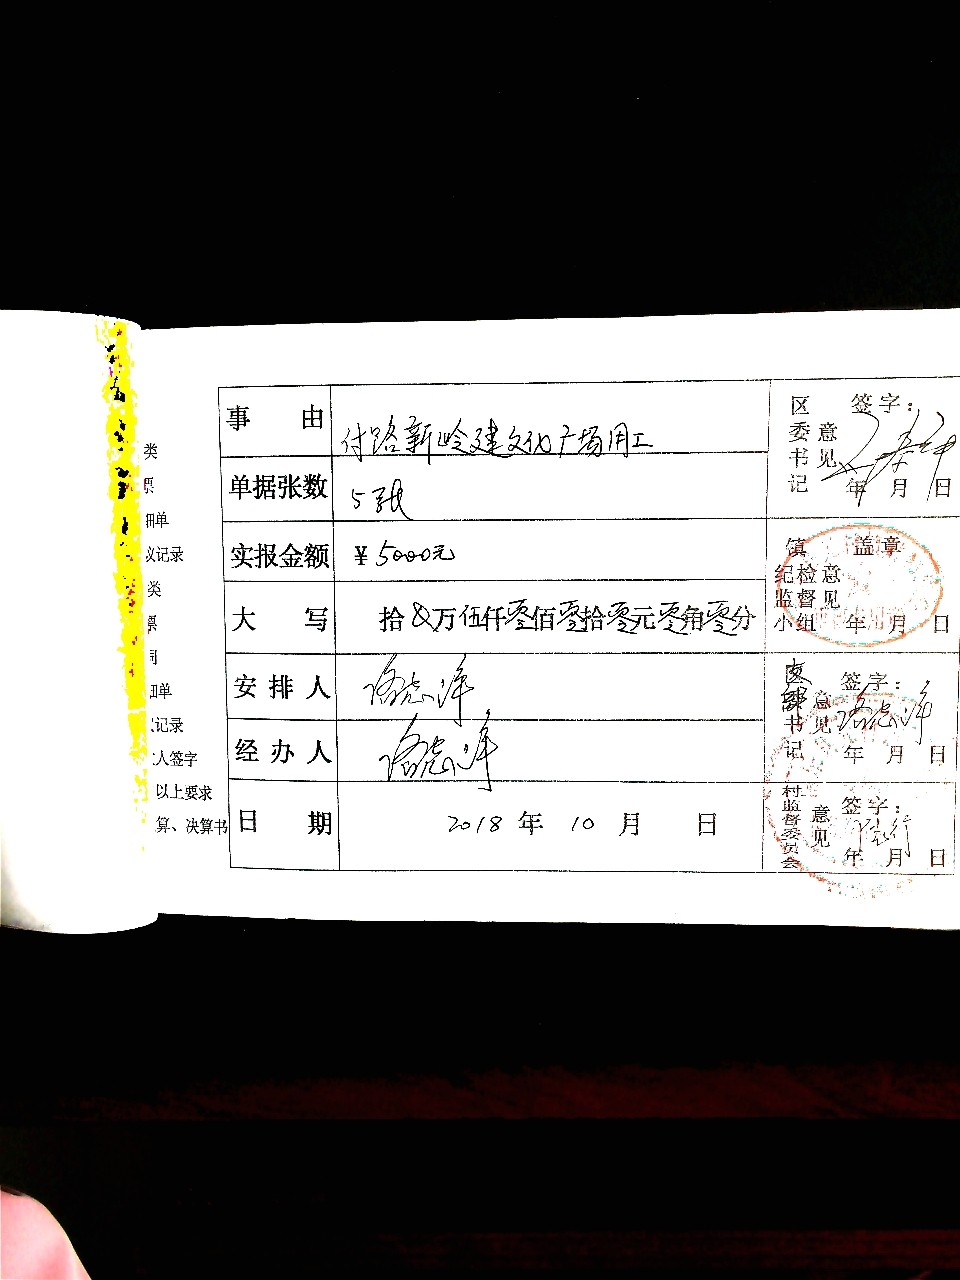 类
票
细单
议记录
类
票
同
细单
记录
人签字
以上要求
算、决算书
事 由
付路新岭建文化广场用工
单据张数
5张
实报金额
¥5000元
大 写
拾&万伍仟零佰零拾零元零角零分
安 排 人
经 办 人
日 期
2018 年 10 月 日
区委书记
意见
签字:
年 月 日
镇纪检监督小组
意见
盖章
年 月 日
支部书记
意见
签字:
年 月 日
村监督委员会
意见
签字:
年 月 日